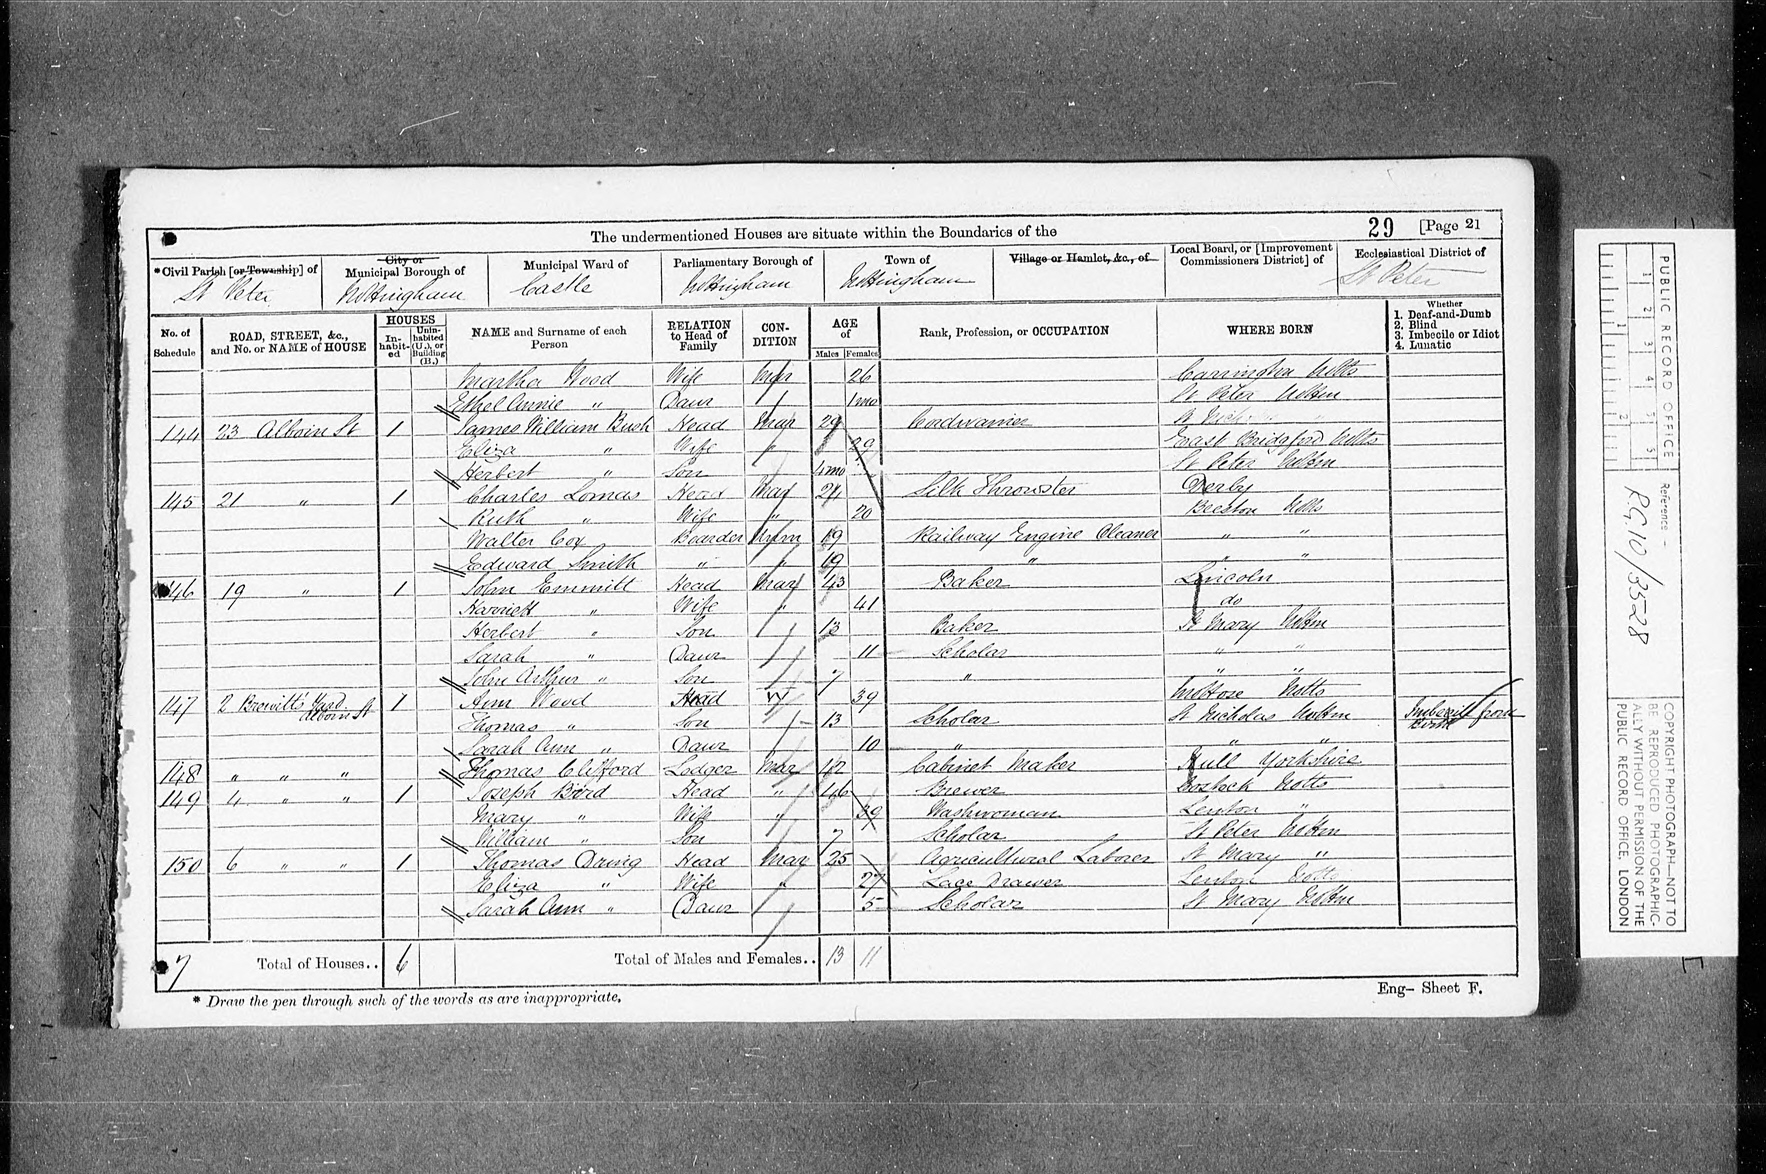 The undermentioned Houses are situate within the Boundaries of the 29 [Page 21
*Civil Parish [or Township] of St Peter
City or Municipal Borough of Nottingham
Municipal Ward of Castle
Parliamentary Borough of Nottingham
Town of Nottingham
Village or Hamlet, &c., of
Local Board, or [Improvement Commissioners District] of
Ecclesiastical District of St Peter
No. of Schedule
ROAD, STREET, &c., and No. or NAME of HOUSE
HOUSES
In-habit-ed
Unin-habited (U.), or Building (B.)
NAME and Surname of each Person
RELATION to Head of Family
CON-DITION
AGE of
Males Females
Rank, Profession, or OCCUPATION
WHERE BORN
Whether
1. Deaf-and-Dumb
2. Blind
3. Imbecile or Idiot
4. Lunatic
Martha Wood Wife Mar 26 Carrington Notts
Ethel Annie " Daur 1mo St Peter Nottm
144 23 Alboin St 1 James William Bush Head Mar 29 Cordwainer
Eliza " Wife " 29 East Bridgford Notts
Herbert " Son 4mo St Peter Nottm
145 21 " 1 Charles Lomas Head Mar 24 Silk Throwster Derby
Ruth " Wife " 20 Beeston Notts
Walter Cox Boarder Unm 19 Railway Engine Cleaner " "
Edward Smith " " 19 " " "
146 19 " 1 John Emmitt Head Mar 43 Baker Lincoln
Harriett " Wife " 41 do
Herbert " Son 13 Baker St Mary Nottm
Sarah " Daur 11 Scholar " "
John Arthur " Son 7 " " "
147 2 Brewitts' Yard Alboin St 1 Ann Wood Head W 39 Notts
Thomas " Son 13 Scholar St Nicholas Nottm Imbecile from Birth
Sarah Ann " Daur 10 " " "
148 " " " Thomas Clifford Lodger Mar 42 Cabinet Maker Hull Yorkshire
149 4 " " 1 Joseph Bird Head " 46 Brewer Notts
Mary " Wife " 39 Washwoman Lenton "
William " Son 7 Scholar St Peter Nottm
150 6 " " 1 Thomas Dring Head Mar 25 Agricultural Laborer St Mary "
Eliza " Wife " 27 Lace Drawer Lenton Notts
Sarah Ann " Daur 5 Scholar St Mary Nottm
7 Total of Houses.. 6 Total of Males and Females.. 13 11
* Draw the pen through such of the words as are inappropriate.
Eng- Sheet F.
PUBLIC RECORD OFFICE
1 2 3 4 5
1 2
Reference -
RG10/3528
COPYRIGHT PHOTOGRAPH—NOT TO
BE REPRODUCED PHOTOGRAPHIC-
ALLY WITHOUT PERMISSION OF THE
PUBLIC RECORD OFFICE, LONDON